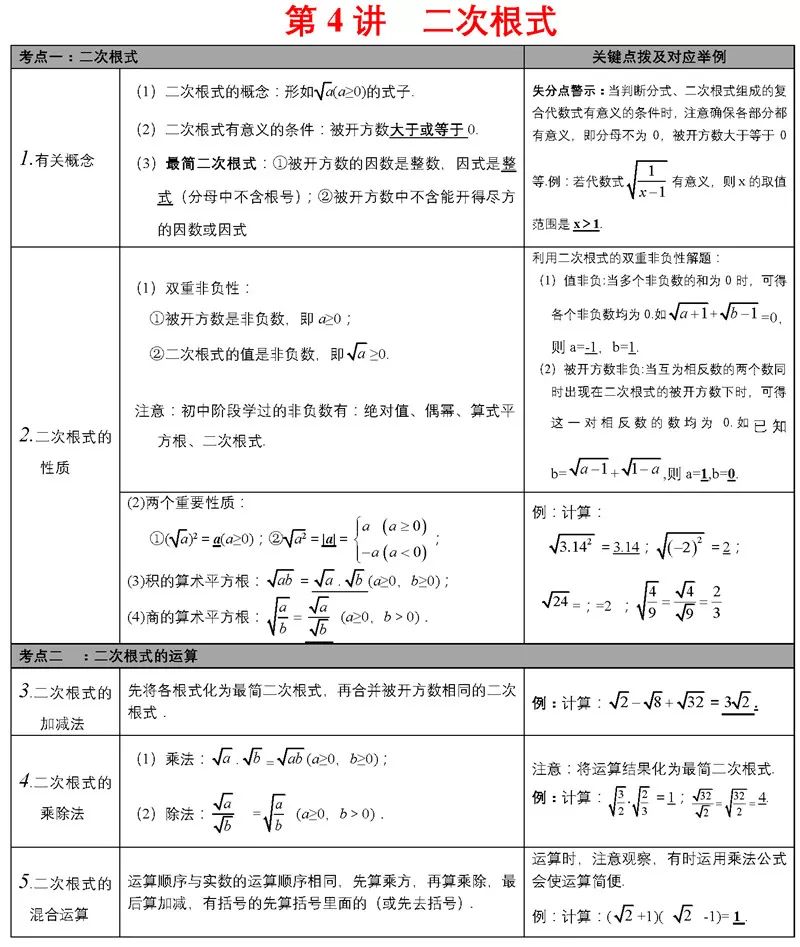 第 4 讲 二次根式
考点一：二次根式
关键点拨及对应举例
1.有关概念
(1) 二次根式的概念：形如√a(a≥0)的式子.
(2) 二次根式有意义的条件：被开方数大于或等于 0.
(3) 最简二次根式：①被开方数的因数是整数，因式是整
式（分母中不含根号）；②被开方数中不含能开得尽方
的因数或因式
失分点警示：当判断分式、二次根式组成的复
合代数式有意义的条件时，注意确保各部分都
有意义，即分母不为 0，被开方数大于等于 0
等.例：若代数式√(1/(x−1)) 有意义，则 x 的取值
范围是 x＞1.
2.二次根式的
性质
(1) 双重非负性：
①被开方数是非负数，即 a≥0；
②二次根式的值是非负数，即√a ≥0.
注意：初中阶段学过的非负数有：绝对值、偶幂、算式平
方根、二次根式.
利用二次根式的双重非负性解题：
(1) 值非负:当多个非负数的和为 0 时，可得
各个非负数均为 0.如√(a+1)+√(b−1)=0,
则 a=-1，b=1.
(2) 被开方数非负:当互为相反数的两个数同
时出现在二次根式的被开方数下时，可得
这一对相反数的数均为 0.如已知
b=√(a−1)+√(1−a),则 a=1,b=0.
(2)两个重要性质：
①(√a)²＝a(a≥0)；②√a²＝|a|＝{a (a≥0) −a (a<0)；
(3)积的算术平方根：√ab ＝√a·√b (a≥0，b≥0)；
(4)商的算术平方根：√(a/b) ＝ √a/√b (a≥0，b＞0)．
例：计算：
√3.14² ＝3.14；√(−2)² ＝2；
√24＝；＝2 ；√(4/9)＝√4/√9＝2/3
考点二 ：二次根式的运算
3.二次根式的
加减法
先将各根式化为最简二次根式，再合并被开方数相同的二次
根式．
例：计算：√2−√8+√32＝3√2．
4.二次根式的
乘除法
(1) 乘法：√a·√b＝√ab (a≥0，b≥0)；
(2) 除法：√a/√b ＝√(a/b) (a≥0，b＞0)．
注意：将运算结果化为最简二次根式.
例：计算：√(3/2)·√(2/3)＝1；√32/√2＝√(32/2)＝4.
5.二次根式的
混合运算
运算顺序与实数的运算顺序相同，先算乘方，再算乘除，最
后算加减，有括号的先算括号里面的（或先去括号）.
运算时，注意观察，有时运用乘法公式
会使运算简便.
例：计算：(√2+1)( √2 -1)= 1 .